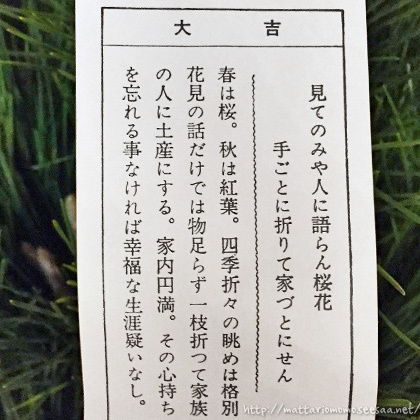 大吉
見てのみや人に語らん桜花
手ごとに折りて家づとにせん
春は桜。秋は紅葉。四季折々の眺めは格別
花見の話だけでは物足らず一枝折つて家族
の人に土産にする。家内円満。その心持ち
を忘れる事なければ幸福な生涯疑いなし。
http://mattariomomo.seesaa.net/